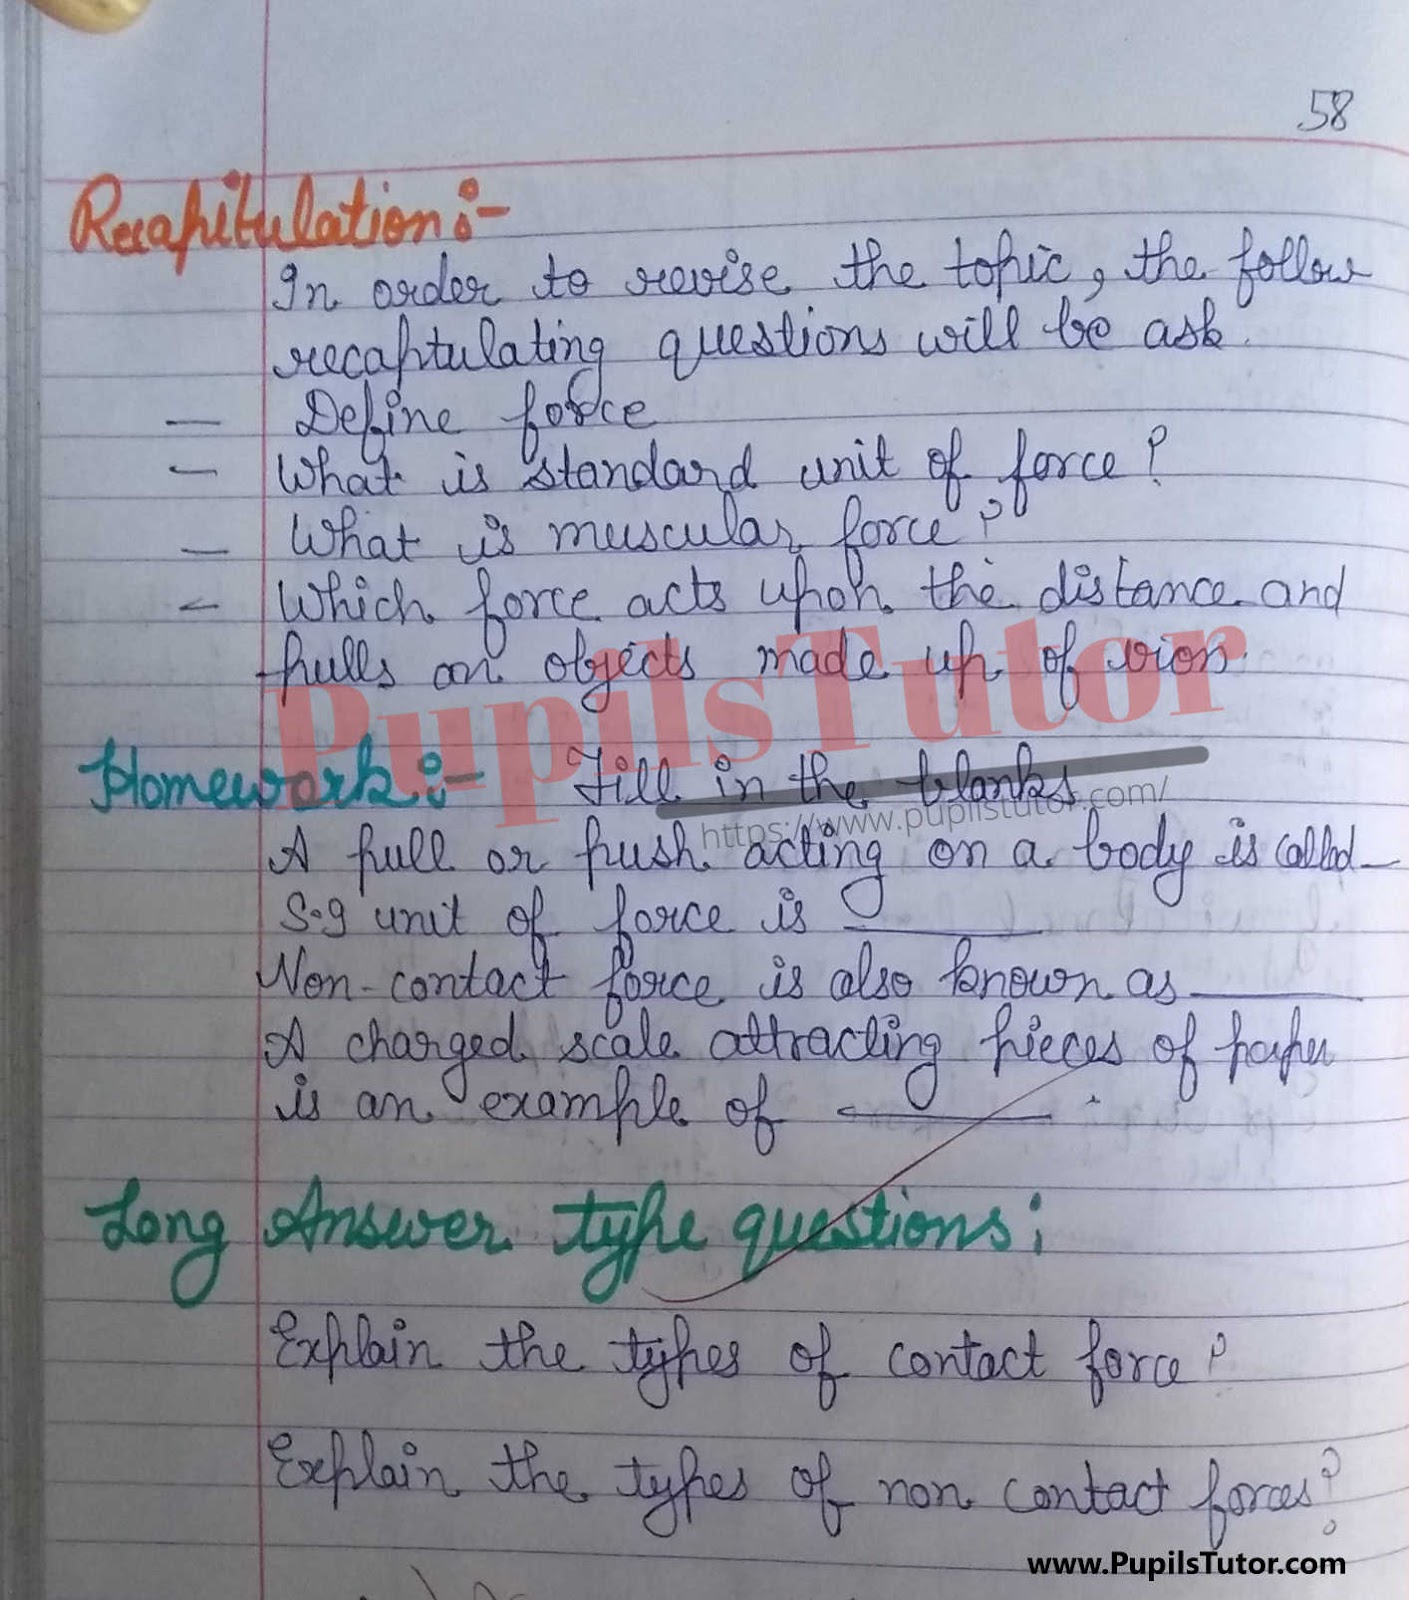 58
Recapitulation:-
In order to revise the topic, the follow
recaptulating questions will be ask.
— Define force
— What is standard unit of force?
— What is muscular force?
— Which force acts upon the distance and
pulls on objects made up of iron.
PupilsTutor
Homework:- Fill in the blanks
https://www.pupilstutor.com/
A pull or push acting on a body is called —
S.I unit of force is ______
Non-contact force is also known as ______
A charged scale attracting pieces of paper
is an example of ______ .
Long Answer type questions:
Explain the types of contact force?
Explain the types of non contact forces?
www.PupilsTutor.com